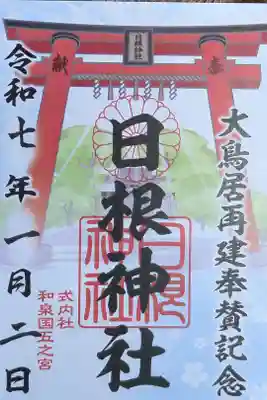 日根神社
奉
献
大鳥居再建奉賛記念
日根神社
日根神社
式内社
和泉国五之宮
令和七年一月二日